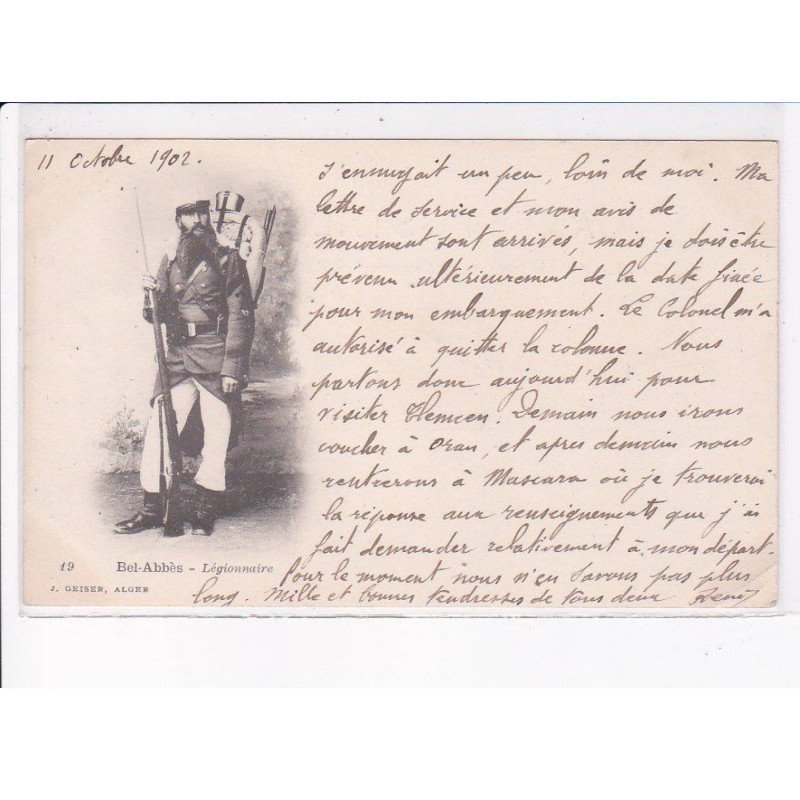 11 Octobre 1902.
s'ennuyait un peu, loin de moi. Ma
lettre de service et mon avis de
mouvement sont arrivés, mais je dois être
prévenu ultérieurement de la date fixée
pour mon embarquement. Le Colonel m'a
autorisé à quitter la colonne. Nous
partons donc aujourd'hui pour
visiter Tlemcen. Demain nous irons
coucher à Oran, et après demain nous
rentrerons à Mascara où je trouverai
la réponse aux renseignements que j'ai
fait demander relativement à mon départ.
Pour le moment nous n'en savons pas plus
long. Mille et bonnes tendresses de tous deux
19 Bel-Abbès - Légionnaire
J. GEISER, ALGER